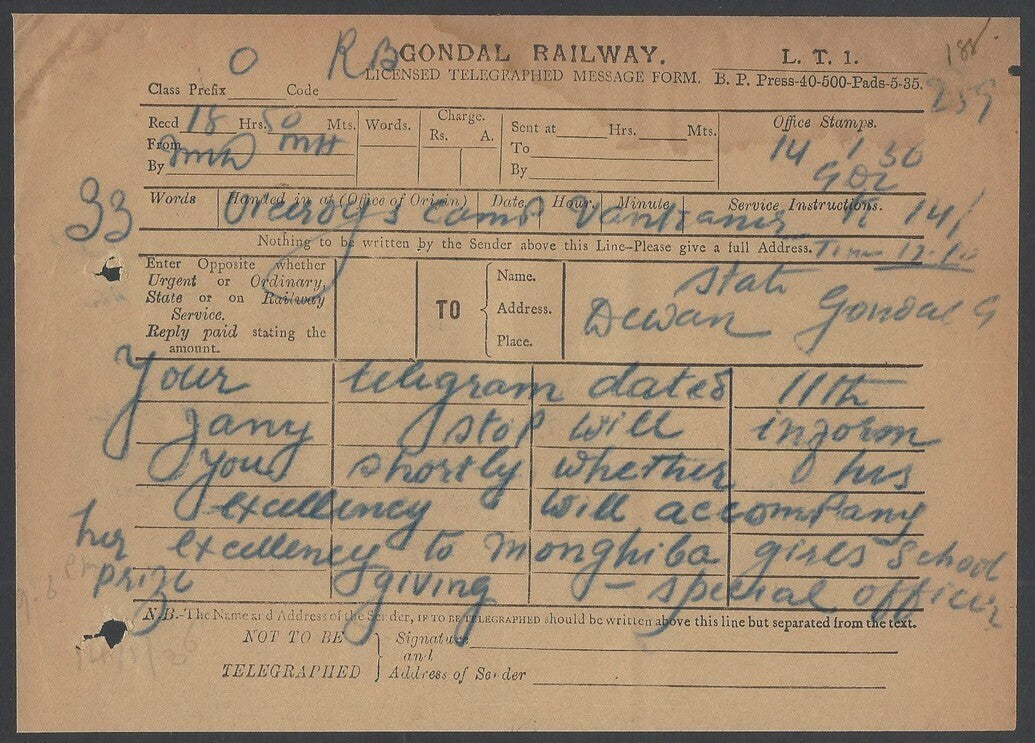 O R B GONDAL RAILWAY. L. T. 1. 188
LICENSED TELEGRAPHED MESSAGE FORM. B. P. Press-40-500-Pads-5-35.
Class Prefix Code 259
Recd 18 Hrs. 50 Mts. Words. Charge. Rs. A. Sent at Hrs. Mts. Office Stamps.
From MH To 14 1 36
By By
33 Words Handed in at (Office of Origin) Date Hour Minute Service Instructions.
Viceroy's Camp Vankaner 14/
Nothing to be written by the Sender above this Line-Please give a full Address. Time
Enter Opposite whether
Urgent or Ordinary,
State or on Railway
Service.
Reply paid stating the
amount.
TO
Name.
Address.
Place.
State
Dewan Gondal G
Your telegram dated 11th
Jany stop will inform
you shortly whether his
excellency will accompany
her excellency to Monghiba girls School
prize giving - special officer
N.B.-The Name and Address of the Sender, IF TO BE TELEGRAPHED should be written above this line but separated from the text.
NOT TO BE
TELEGRAPHED
Signature
and
Address of Sender